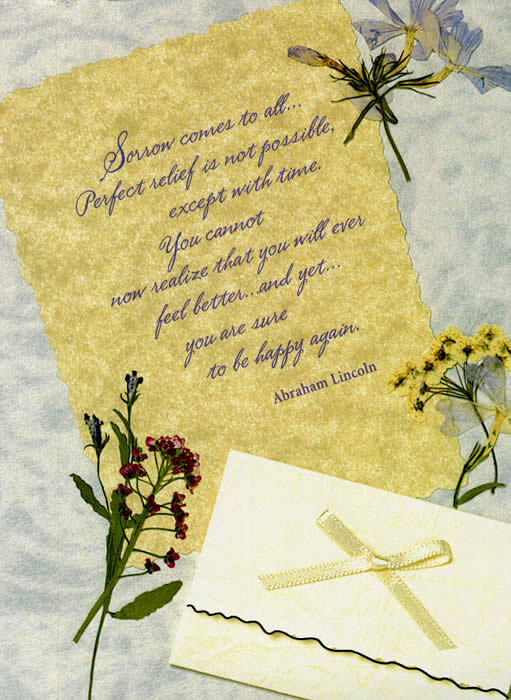 Sorrow comes to all...
Perfect relief is not possible,
except with time.
You cannot
now realize that you will ever
feel better...and yet...
you are sure
to be happy again.
Abraham Lincoln